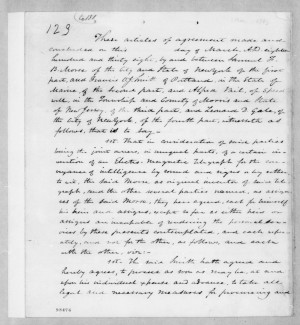 123
These articles of agreement made and
concluded in this day of March, A.D. eighteen
hundred and thirty eight, by and between Samuel F.
B. Morse, of the City and State of New York, of the first
part, and Francis O. J. Smith of Portland, in the State of
Maine, of the second part, and Alfred Vail, of
in the Township and County of Morris and State
of New Jersey, of the third part, and Leonard D. Gale, of
the City of New York, of the fourth part, witnesseth as
follows, that is to say.
1st. That in consideration of said parties
being the joint owners, in unequal parts, of a certain in-
vention of an Electro Magnetic Telegraph for the con-
veyance of intelligence by
to wit, the said Morse, as original inventor of said Tele-
graph, and the other several parties named, as assign-
ees of the said Morse, they have agreed, each for himself
his heirs and assigns,
by these presents contemplated, and each
and not for the other, as follows and each
with the other, viz:
The said Smith hath agreed and
hereby agrees, to proceed as soon as may be, at and
upon his individual expense and advance, to take all
legal and necessary measures for procuring and